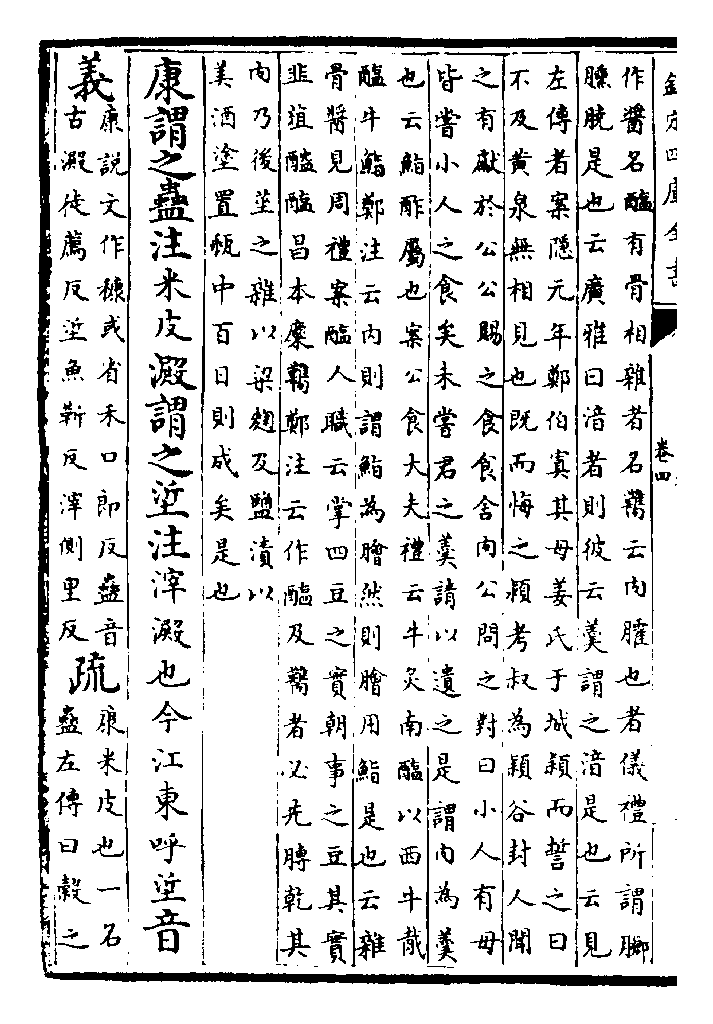 欽定四庫全書
卷四
作醬名醢有骨相雜者名臡云肉臛也者儀禮所謂膷
臐膮是也云廣雅曰湆者則彼云羹謂之湆是也云見
左傳者案隱元年鄭伯寘其母姜氏于城潁而誓之曰
不及黃泉無相見也既而悔之潁考叔為潁谷封人聞
之有獻於公公賜之食食舍肉公問之對曰小人有母
皆嘗小人之食矣未嘗君之羹請以遺之是謂肉為羹
也云鮨酢屬也案公食大夫禮云牛炙南醢以西牛胾
醢牛鮨鄭注云内則謂鮨為膾然則膾用鮨是也云雜
骨醬見周禮案醢人職云掌四豆之實朝事之豆其實
韭菹醓醢昌本麋臡鄭注云作醢及臡者必先膊乾其
肉乃後莝之雜以梁麴及鹽漬以
美酒塗置瓶中百日則成矣是也
康謂之蠱注米皮澱謂之垽注滓澱也今江東呼垽音
義康說文作穅或省禾口郎反蠱音
古澱徒薦反垽魚靳反滓側里反
疏康米皮也一名
蠱左傳曰穀之